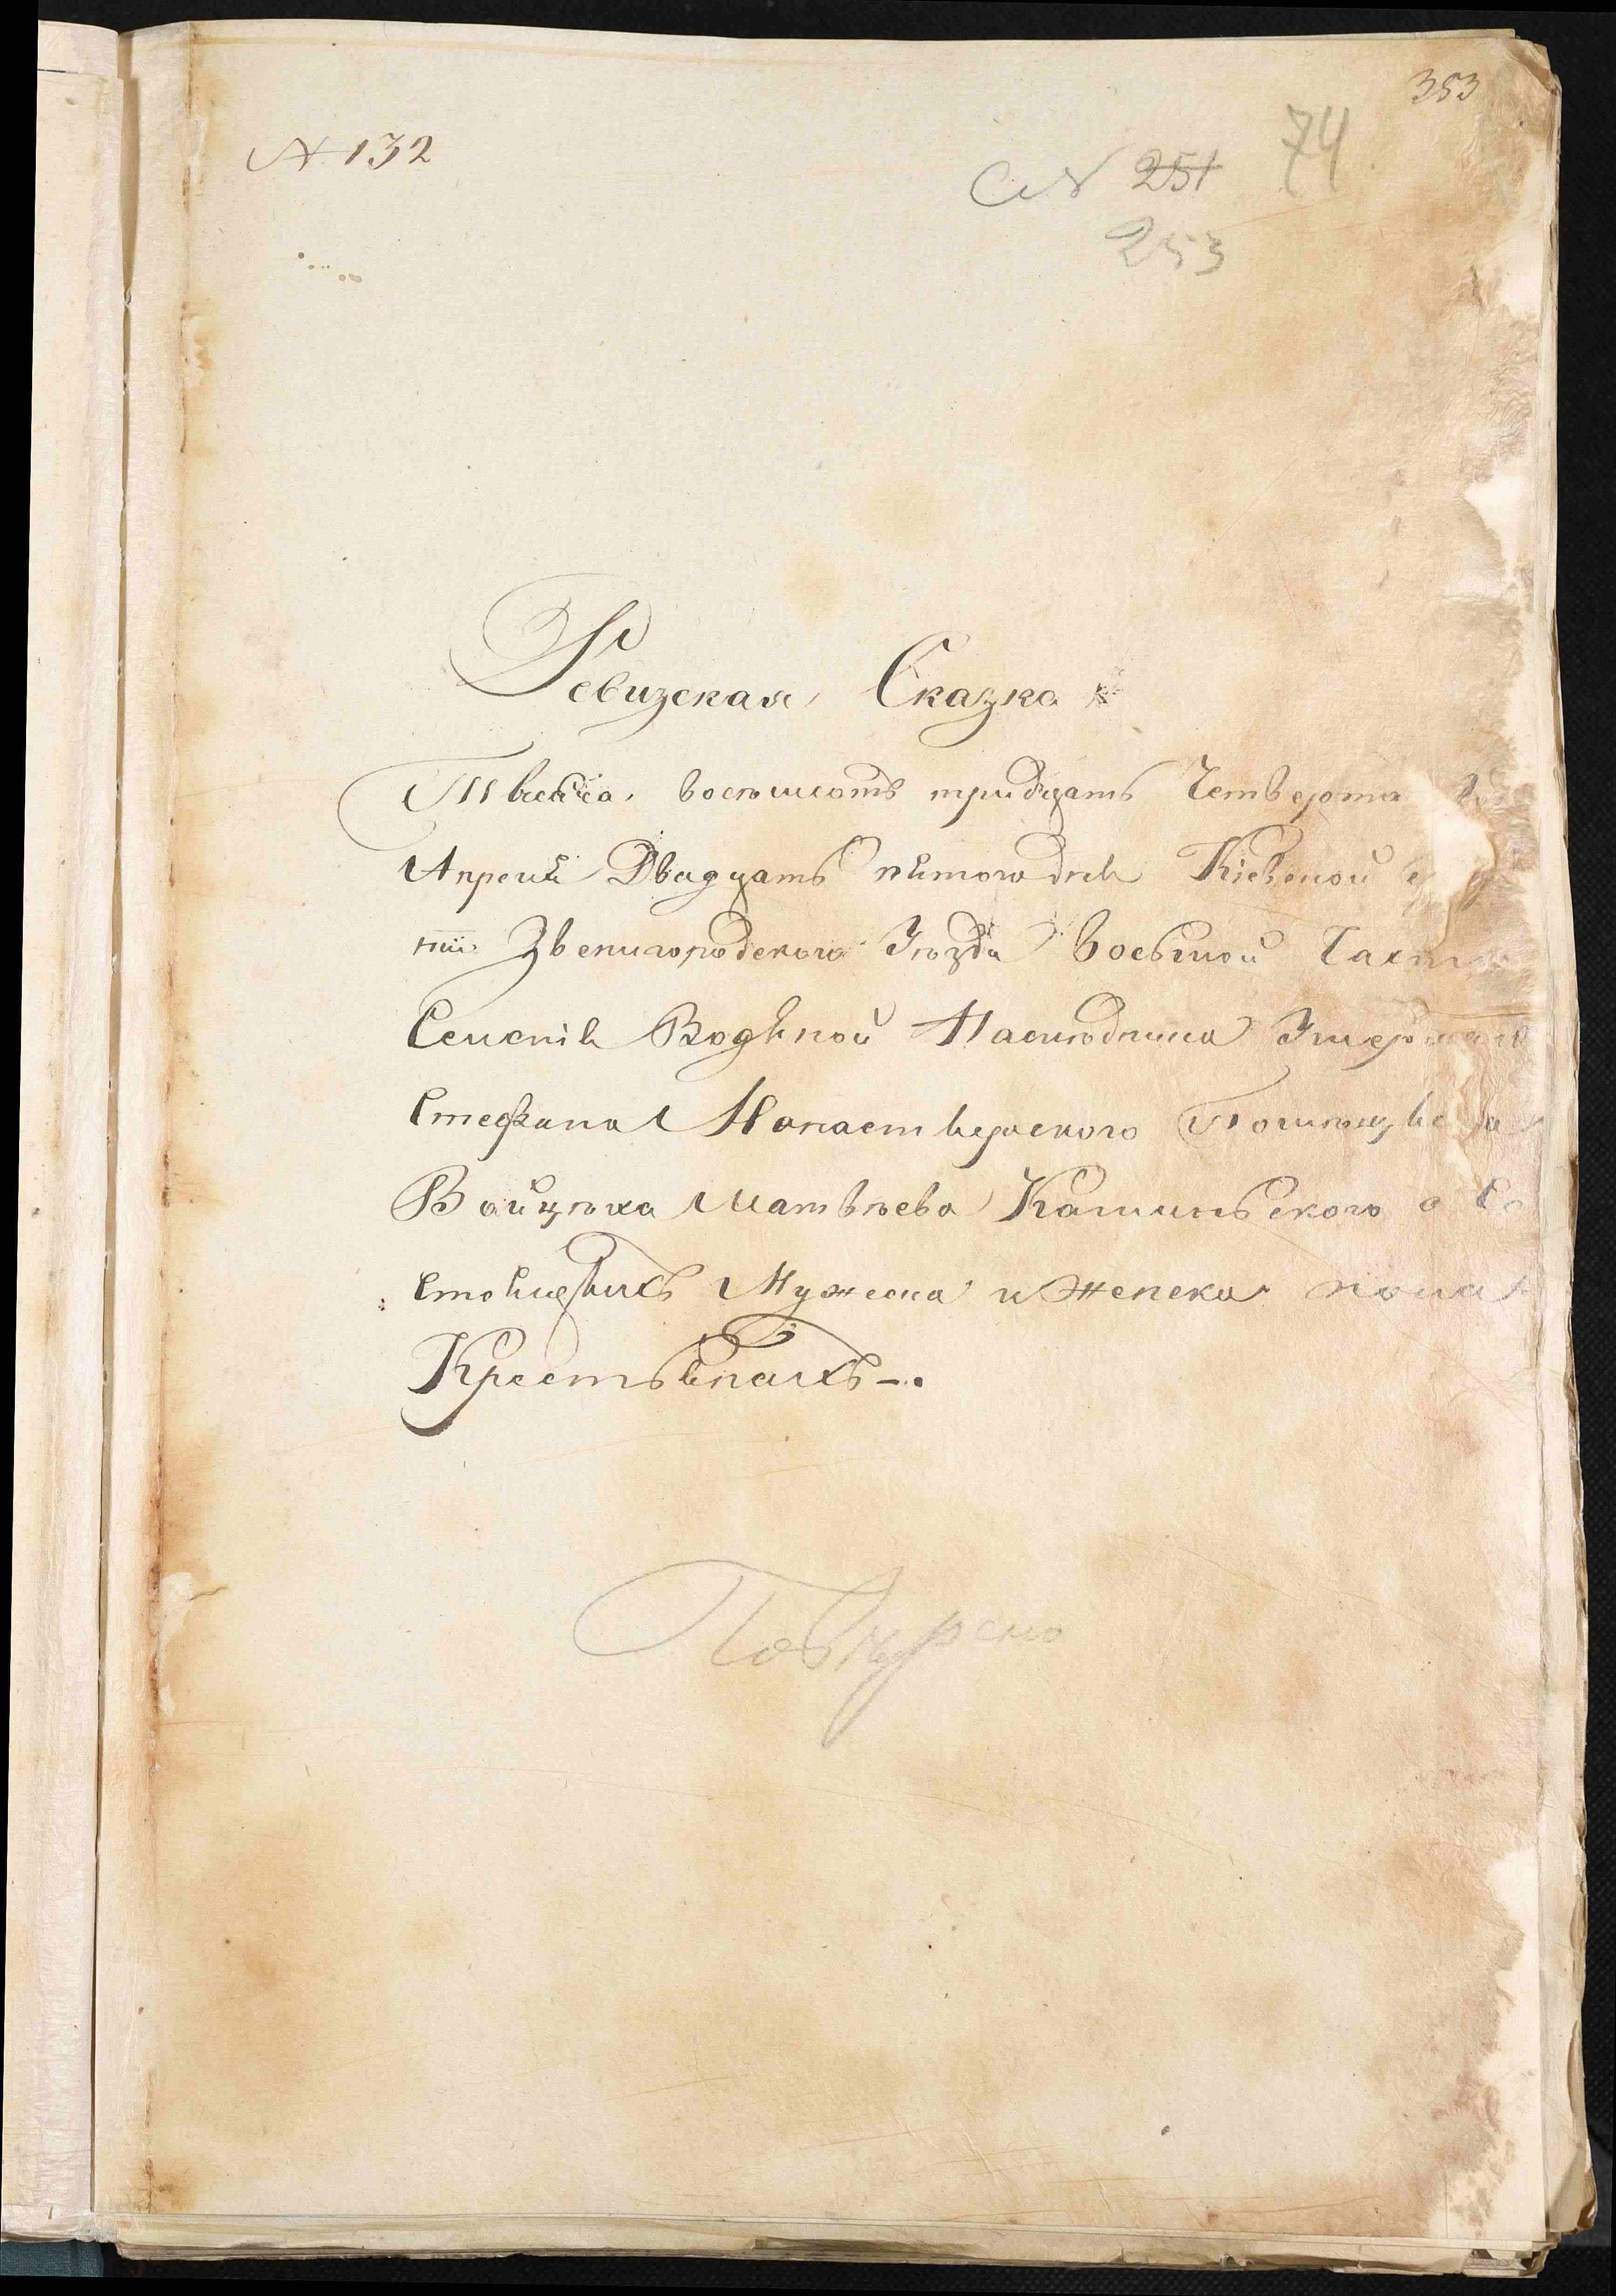 353
№ 132
74
251
253
Ревизская Сказка
Тысяча восемсотъ тридцать Четверта
Апреля Двадцать пятого дня Кіевской
ніи Звенигородского Уѣзда восьмой Части
Селенія Водяной Наслѣдника Умершаго
Стефана Монастверского
Войцѣха Матвѣева о
стоящихъ Мужеска и Женска пола
Крестьянахъ -.